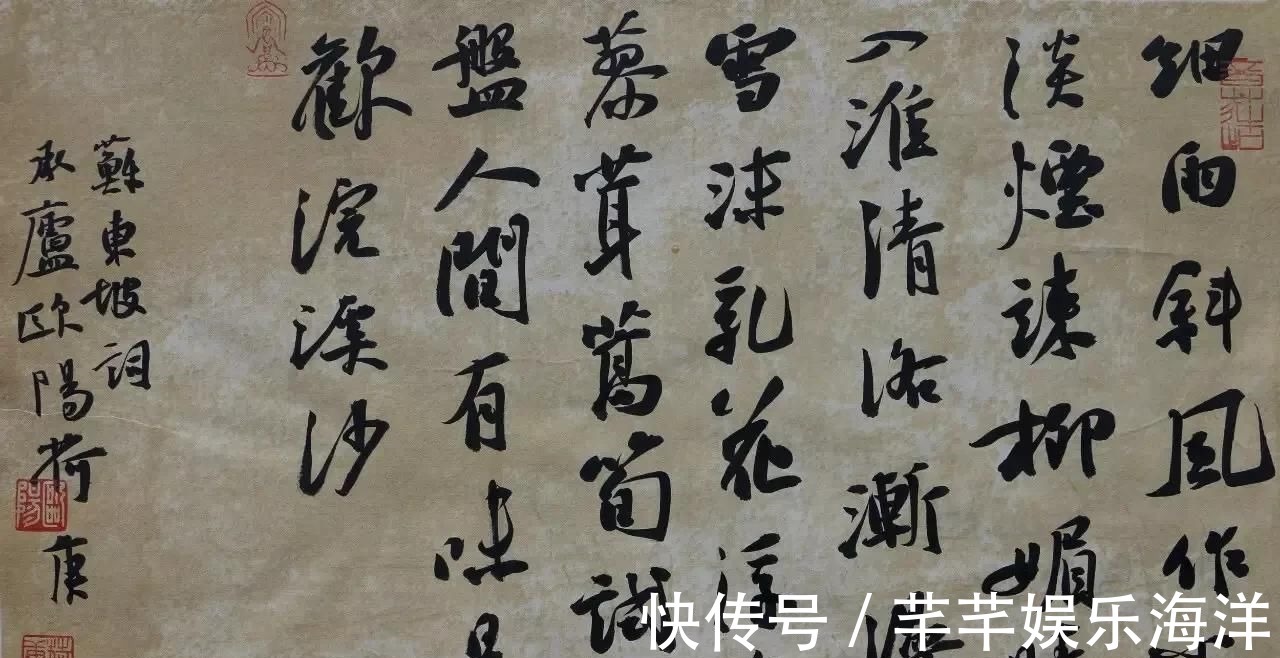 細雨斜風作
淡煙疎柳媚
入淮清洛漸
雪沫乳花浮
蓼茸蒿筍試
盤人間有味是
歡浣溪沙
蘇東坡詞
承廬歐陽荷庚
歐陽
快传号 / 芊芊娱乐海洋